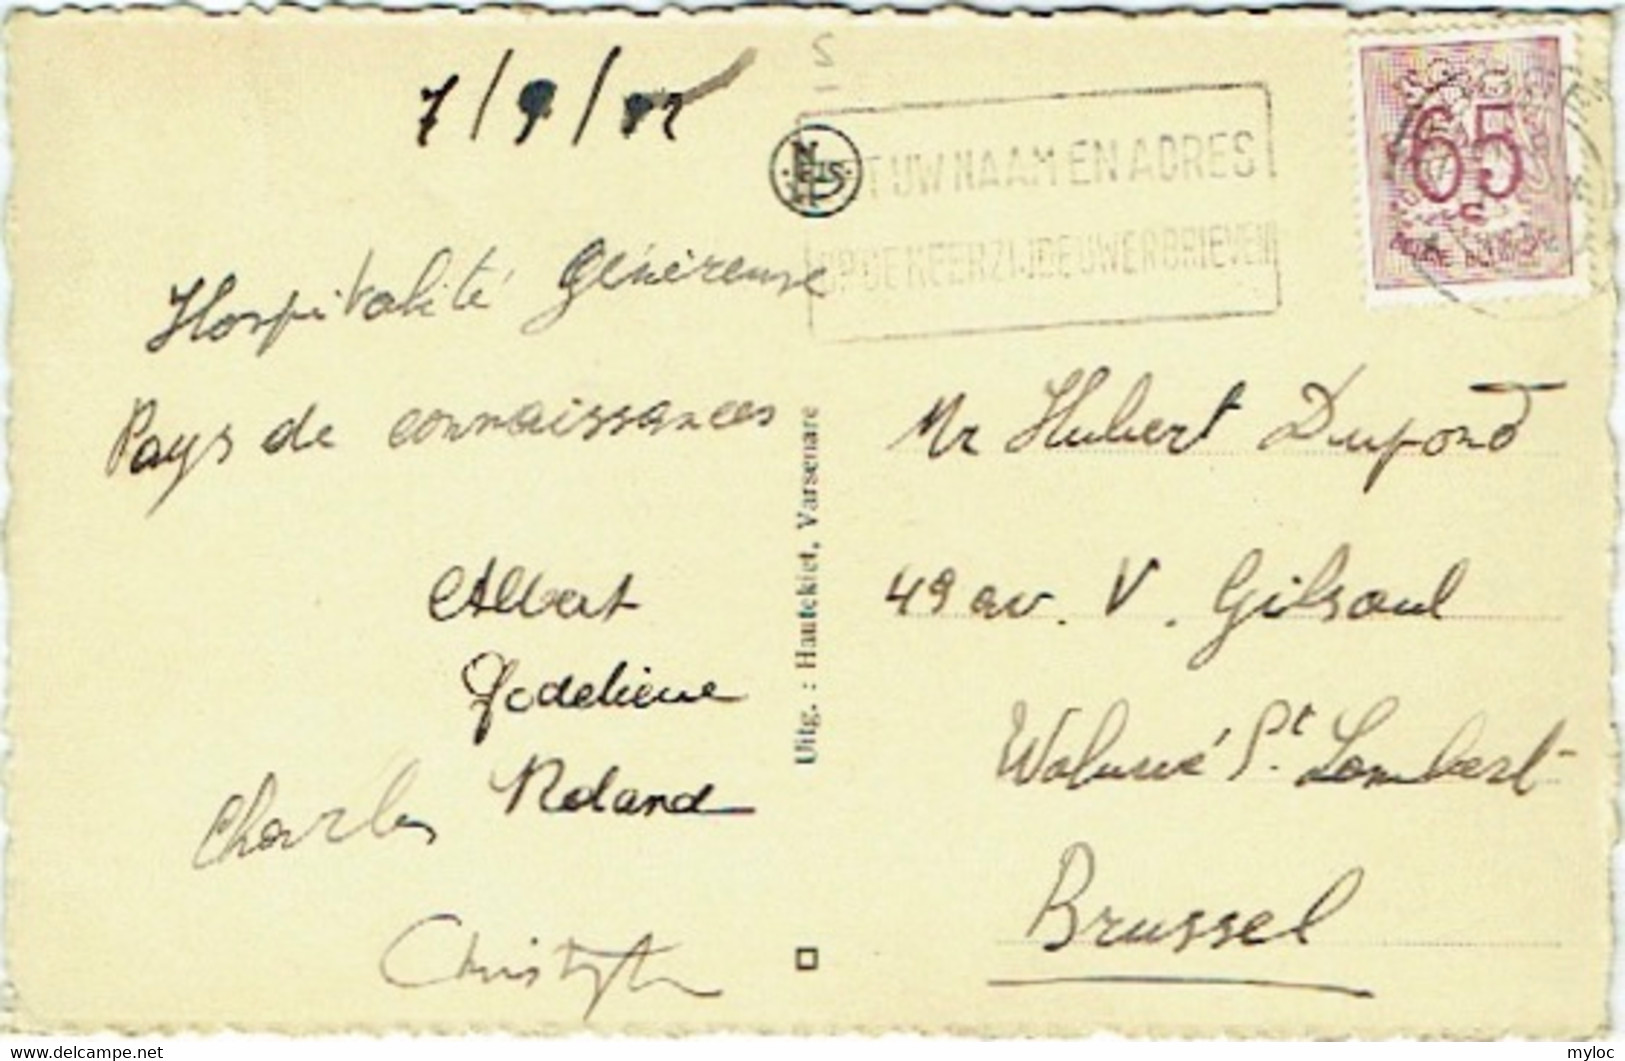 7/9/
Hospitalité Généreuse
Pays de connaissances
Albert
Godelieve
Roland
Charles
Christophe
NELS
T UW NAAM EN ADRES
OP DE KEERZIJDE UWER BRIEVEN
65
c
BELGIE BELGIQUE
Uitg. : Hautekiet, Varsenare
Mr Hubert Dupond
49 av. V. Gilsoul
Woluwé St. Lambert
Brussel
www.delcampe.net
myloc